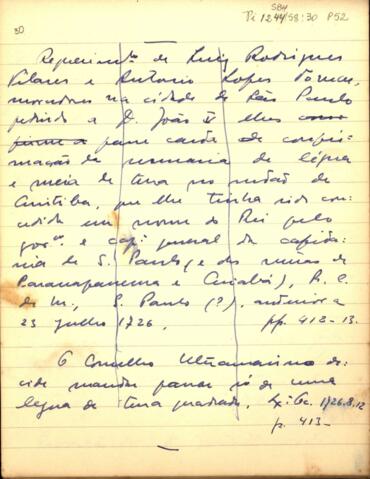 SBH
Pi 1244/58:30 P52
30
Requerimto de Luiz Rodrigues
Vilares e Antonio Lopes Tomar,
moradores na cidade de São Paulo
pedindo a D. João V lhes
passe carta de confir-
mação de sesmaria de légua
e meia de terra no sertão de
Curitiba, que lhe tinha sido con-
cedida em nome do Rei pelo
govor. e cap. general da capita-
nia de S. Paulo (e das minas de
Paranapanema e Cuiabá), R. C.
de M., S. Paulo (?), anterior a
23 julho 1726. pp. 412-13.
O Conselho Ultramarino de-
cide mandar passar só de uma
légua de terra quadrada. Lx: Oc. 1726.8.12
p. 413-